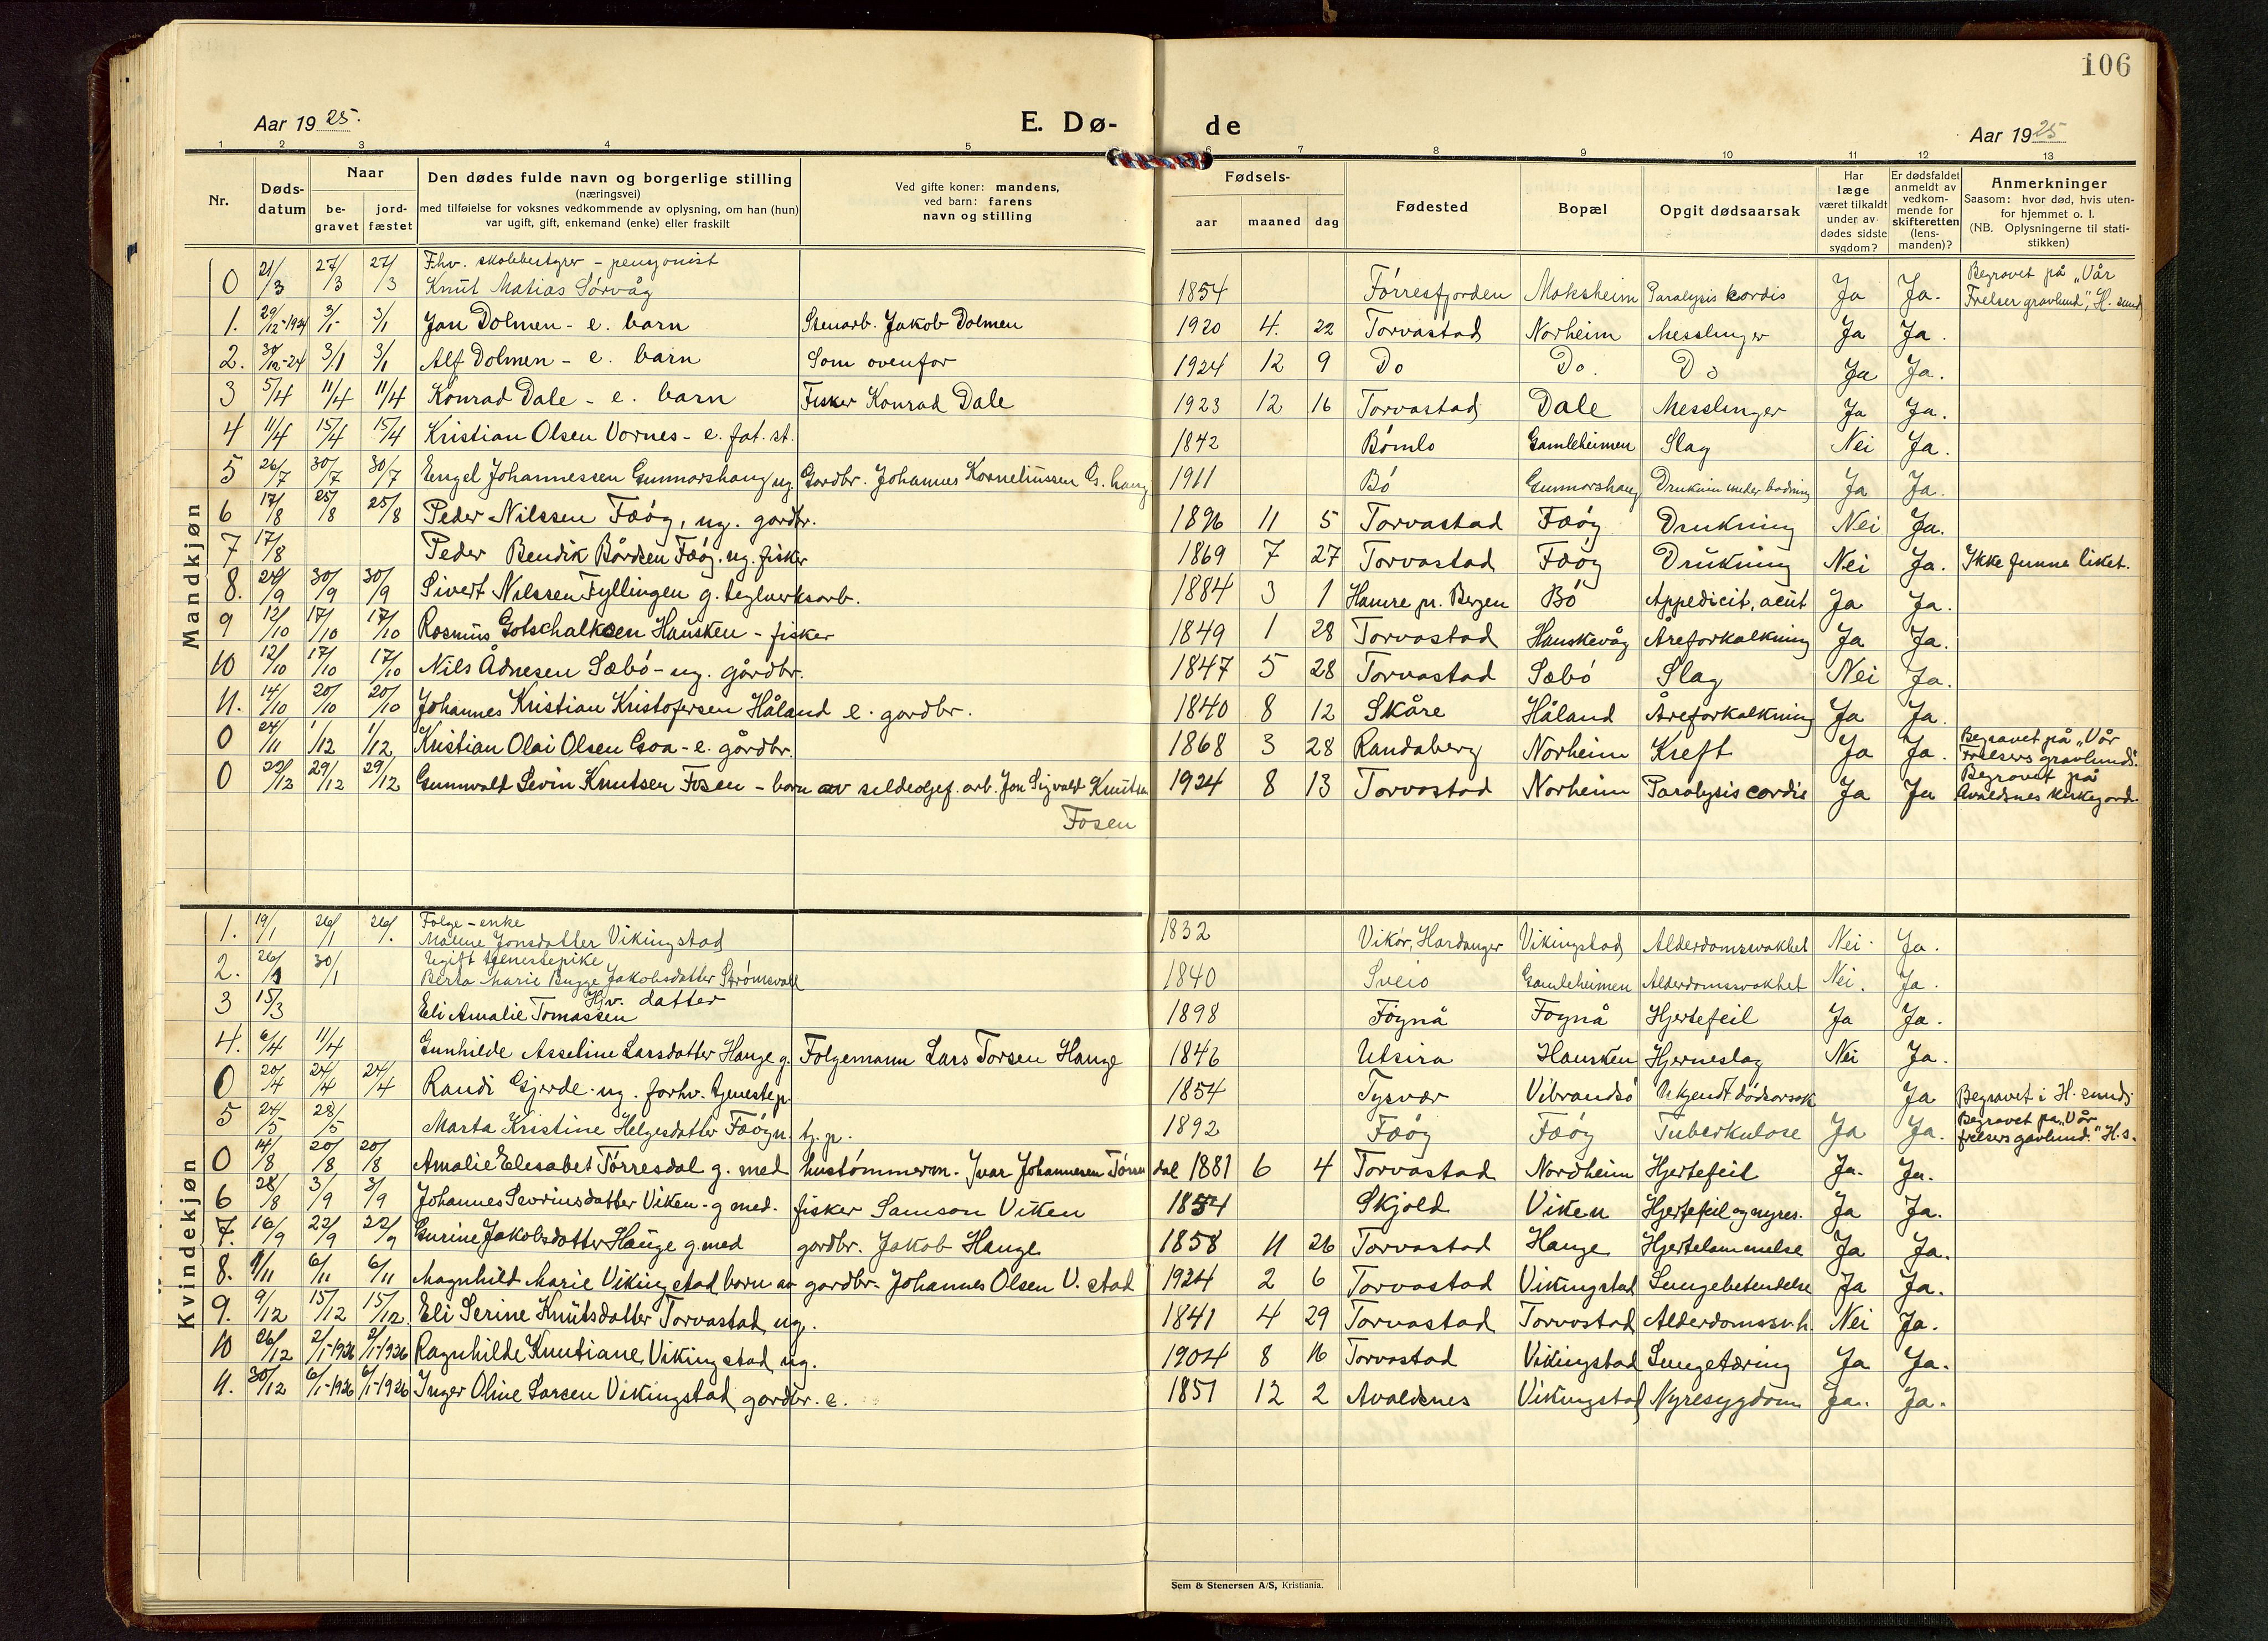 106
Aar 1925.
E. Dø-
de
Aar 1925
1 2 3 4 5 6 7 8 9 10 11 12 13
Nr.
Døds-
datum
Naar
be-
gravet
jord-
fæstet
Den dødes fulde navn og borgerlige stilling
(næringsvei)
med tilføielse for voksnes vedkommende av oplysning, om han (hun)
var ugift, gift, enkemand (enke) eller fraskilt
Ved gifte koner: mandens,
ved barn: farens
navn og stilling
Fødsels-
aar
maaned
dag
Fødested
Bopæl
Opgit dødsaarsak
Har
læge
været tilkaldt
under av-
dødes sidste
sygdom?
Er dødsfaldet
anmeldt av
vedkom-
mende for
skifteretten
(lens-
manden)?
Anmerkninger
Saasom: hvor død, hvis uten-
for hjemmet o. l.
(NB. Oplysningerne til stati-
stikken)
Mandkjøn
F.hv. skolebestyrer - pensjonist
0 21/3 27/3 27/3 Knut Matias Sørvåg 1854 Førresfjorden Moksheim Paralysis cordis Ja Ja. Begravet på „Vår
Frelser gravlund", H. sund
1. 29/12-1924 3/1- 3/1 Jan Dolmen - e. barn Stenarb. Jakob Dolmen 1920 4. 22 Torvastad Norheim Messlinger Ja Ja.
2. 30/12-24 3/1 3/1 Alf Dolmen - e. barn Som ovenfor 1924 12 9 Do Do. Do Ja Ja.
3 5/4 11/4 11/4 Konrad Dale - e. barn Fisker Konrad Dale 1923 12 16 Torvastad Dale Messlinger Ja Ja.
4 11/4 15/4 15/4 Kristian Olsen Vornes - e. fat. st. 1842 Bømlo Gamleheimen Slag Nei Ja.
5 26/7 30/7 30/7 Engel Johannessen Gunnarshaug ug. Gardbr. Johannes Korneliussen G. haug 1911 Bø Gunnarshaug Drukning under badning Ja Ja.
6 17/8 25/8 25/8 Peder Nilssen Fæøy, ug. gardbr. 1896 11 5 Torvastad Fæøy Drukning Nei Ja.
7 17/8 Peder Bendik Bårdsen Fæøy. ug. fisker 1869 7 27 Torvastad Fæøy Drukning Nei Ja. Ikke funne liket.
8. 24/9 30/9 30/9 Sivert Nilssen Fyllingen g. teglverksarb. 1884 3 1 Hamre pr. Bergen Bø Appedicit, acut Ja Ja.
9 12/10 17/10 17/10 Rasmus Gotschalksen Hausken - fisker 1849 1 28 Torvastad Hauskevåg Åreforkalkning Ja Ja.
10 12/10 17/10 17/10 Nils Ådnesen Sæbø - ug. gårdbr. 1847 5 28 Torvastad Sæbø Slag Nei Ja.
11. 14/10 20/10 20/10 Johannes Kristian Kristofersen Håland e. gardbr. 1840 8 12 Skåre Håland Åreforkalkning Ja Ja.
0 24/11 1/12 1/12 Kristian Olai Olsen Goa - e. gårdbr. 1868 3 28 Randaberg Norheim Kreft Ja Ja. Begravet på „Vår
Frelsers gravlunds".
0 22/12 29/12 29/12 Gunnvald Sevin Knutsen Fosen - barn av sildoljef. arb. Jon Sigvald Knutsen 1924 8 13 Torvastad Norheim Paralysis cordis Ja Ja Begravet på
Avaldsnes kirkegard.
Fosen
Kvindekjøn
Følge - enke
1. 19/1 26/1 26/1. Malene Jonsdatter Vikingstad 1832 Vikør, Hardanger Vikingstad Alderdomsvakhet Nei. Ja.
Ugift tjenestepike
2. 26/1 30/1 Berta Marie Bugge Jakobsdatter Strømsvall 1840 Sveio Gamleheimen Alderdomssvakhet Nei. Ja.
Hjv. datter
3 15/3 Eli Amalie Tomassen 1898 Føynå Føynå Hjertefeil Ja Ja.
4. 6/4 11/4 Gunhilde Asseline Larsdatter Hauge g. Følgemann Lars Torsen Hauge 1846 Utsira Hausken Hjerneslag Nei Ja.
0 20/4 24/4 24/4 Randi Gjerde - ug. forhv. tjenestep. 1854 Tysvær Vibrandsø Ukjendt dødsorsak Ja Begravet i H. sund.
5 24/5 28/5 Marta Kristine Helgesdatter Fæøy u. tj. p. 1892 Fæøy Fæøy Tuberkulose Ja Ja. Begravet på „Vår
frelsers gavlund." H.s.
0 14/8 20/8 20/8 Amalie Elesabet Tørresdal g. med hustømmerm. Ivar Johannesen Tørresdal 1881 6 4 Torvastad Nordheim Hjertefeil Ja. Ja.
6 28/8 3/9 3/9 Johannes Sevrinsdatter Viken - g med. fisker Samson Viken 1854 Skjold Viken Hjertefeil og nyres. Ja Ja.
7. 16/9 22/9 22/9 Gurine Jakobsdatter Hauge g. med gardbr. Jakob Hauge 1858 11 26 Torvastad Hauge Hjertelammelse Ja Ja.
8. 1/11 6/11 6/11 Magnhild Marie Vikingstad barn av gardbr. Johannes Olsen V. stad 1924 2 6 Torvastad Vikingstad Lungebetendelse Ja Ja.
9. 9/12 15/12 15/12 Eli Serine Knutsdatter Torvastad ug. 1841 4 29 Torvastad Torvastad Alderdomssv.h. Nei Ja.
10 26/12 2/1-1926 2/1-1926 Ragnhilde Knutiane Vikingstad ug. 1904 8 16 Torvastad Vikingstad Lungetæring Ja Ja.
11. 30/12 6/1-1926 6/1-1926 Inger Oline Larsen Vikingstad gardbr. e. 1851 12 2 Avaldsnes Vikingstad Nyresygdom Ja. Ja.
Sem & Stenersen A/S, Kristiania.